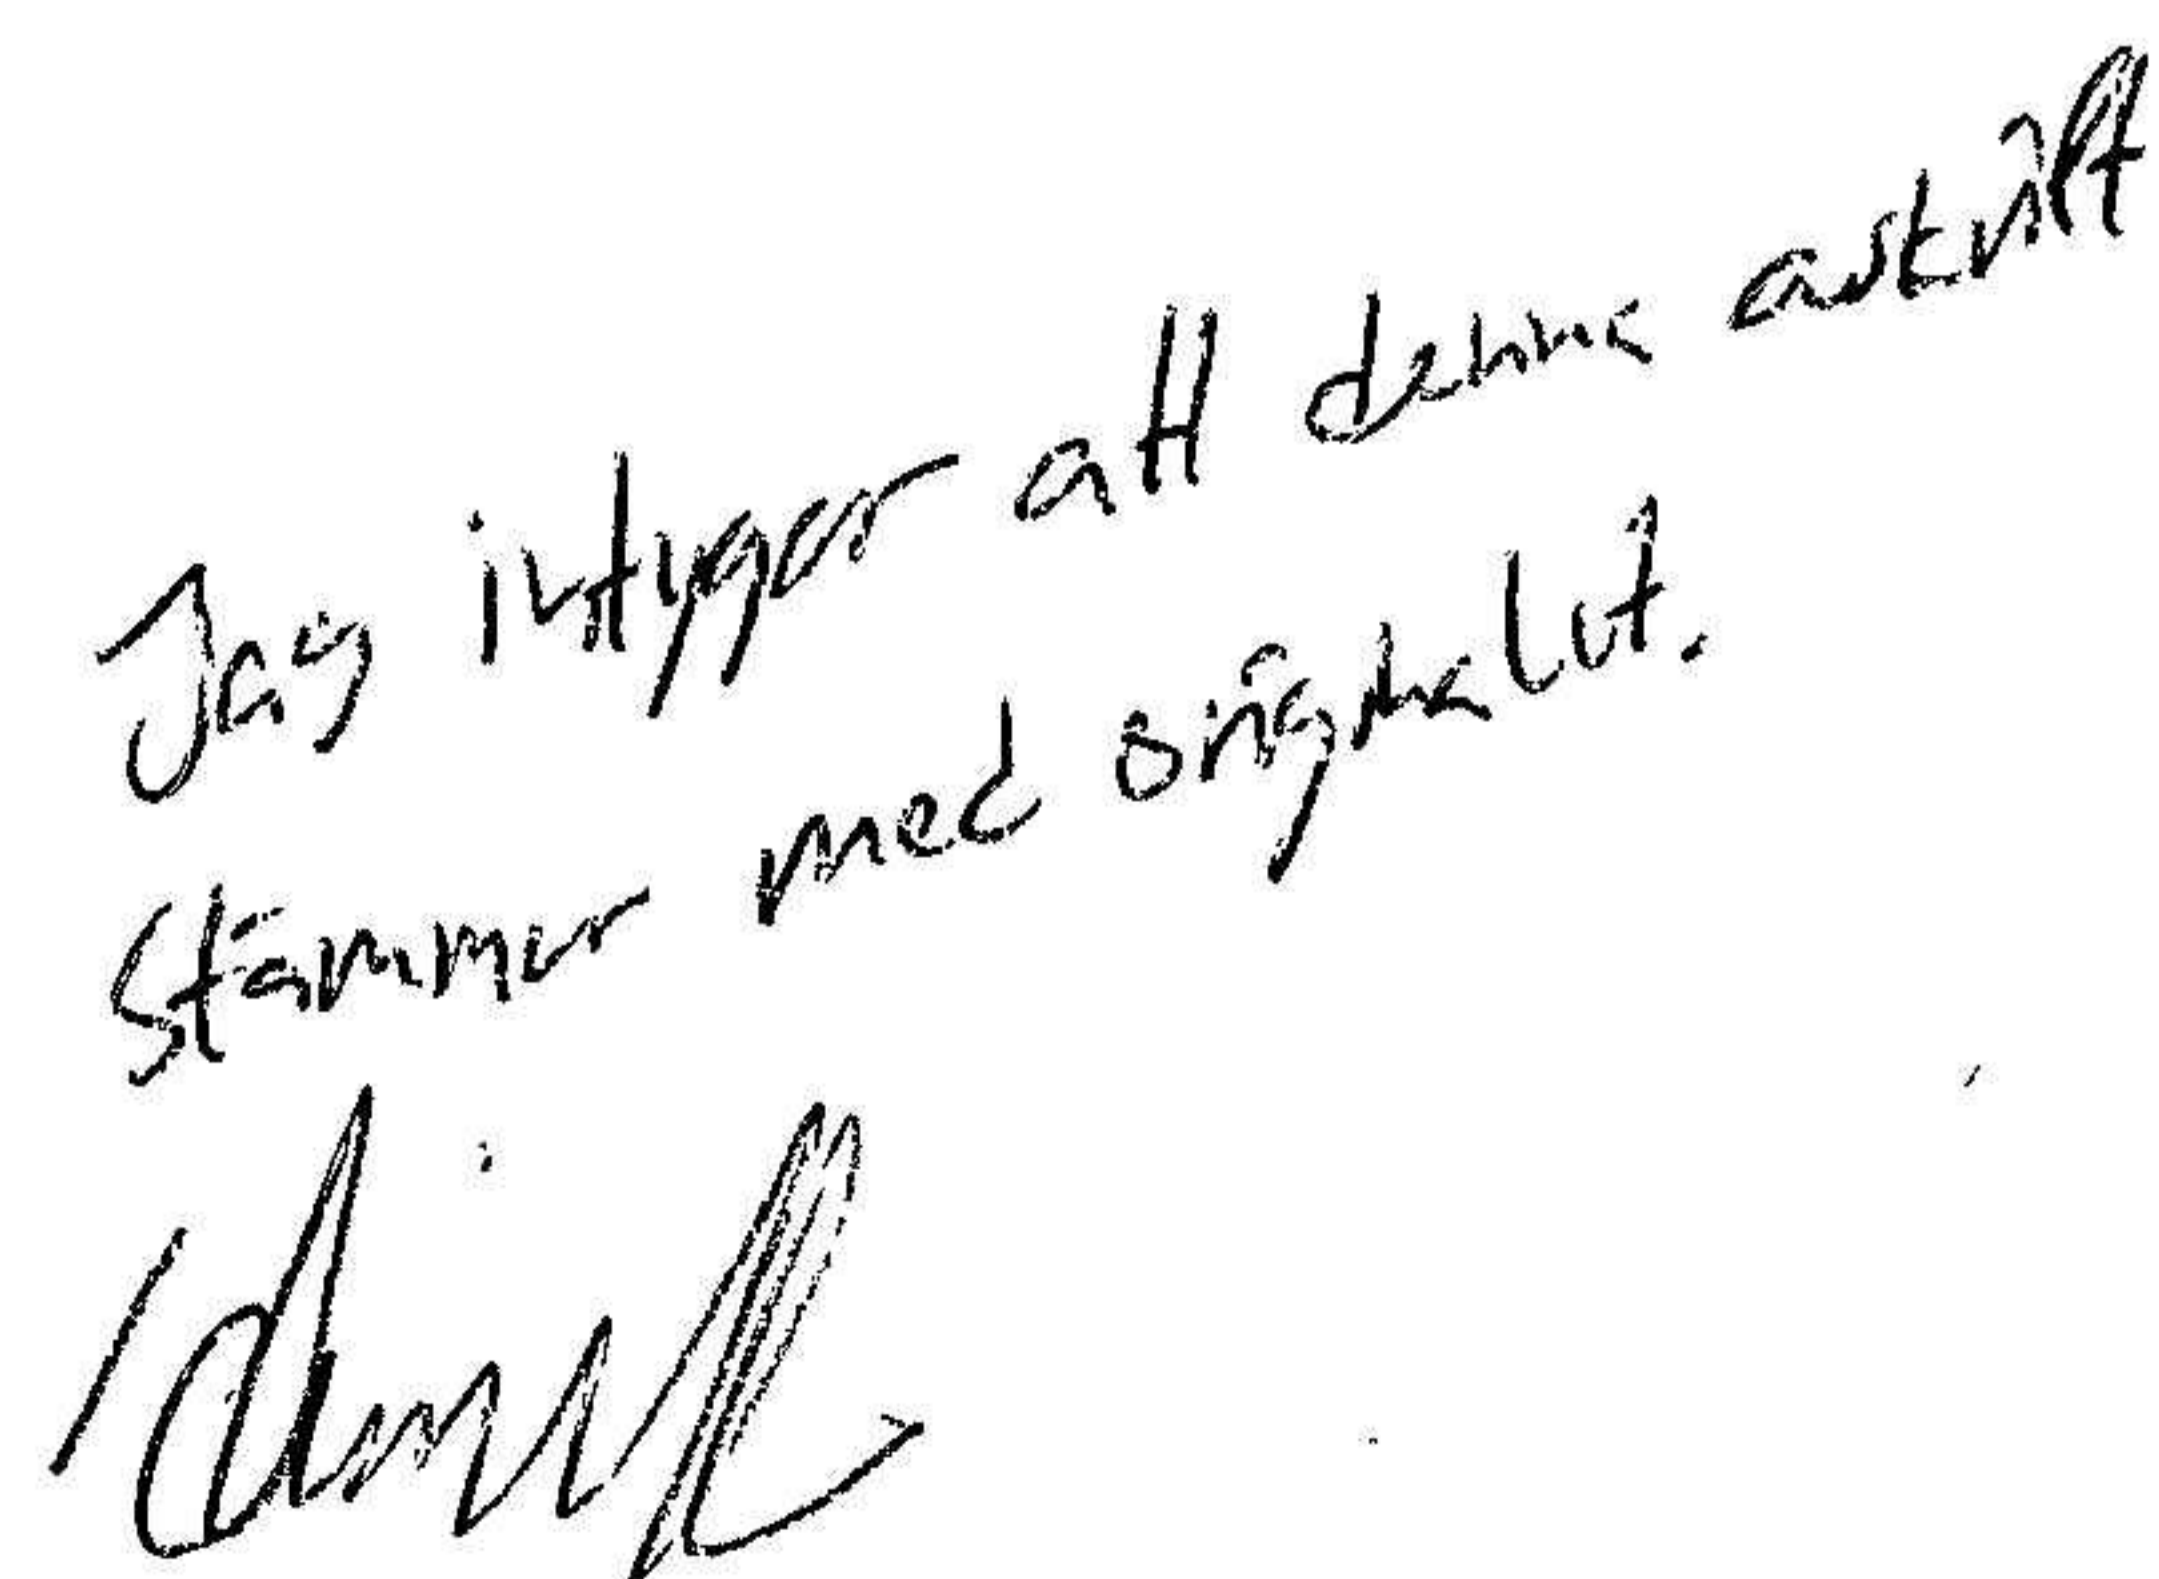 Jag intyger att denna avskrift
stämmer med originalet.